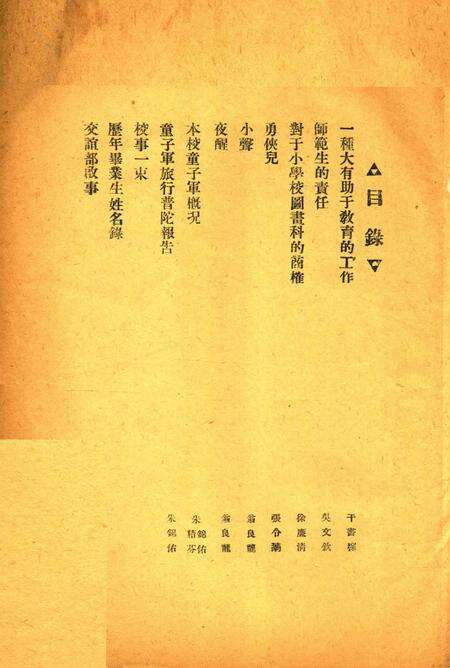 目錄
一種大有助于教育的工作
師範生的責任 吳文欽
對于小學校圖畫科的商榷 徐慶清
勇俠兒
小聲 翁良
夜醒 翁良
本校童子軍概況 朱錦佑
童子軍旅行普陀報告 朱錦佑
校事一束
歷年畢業生姓名錄
交誼部啟事